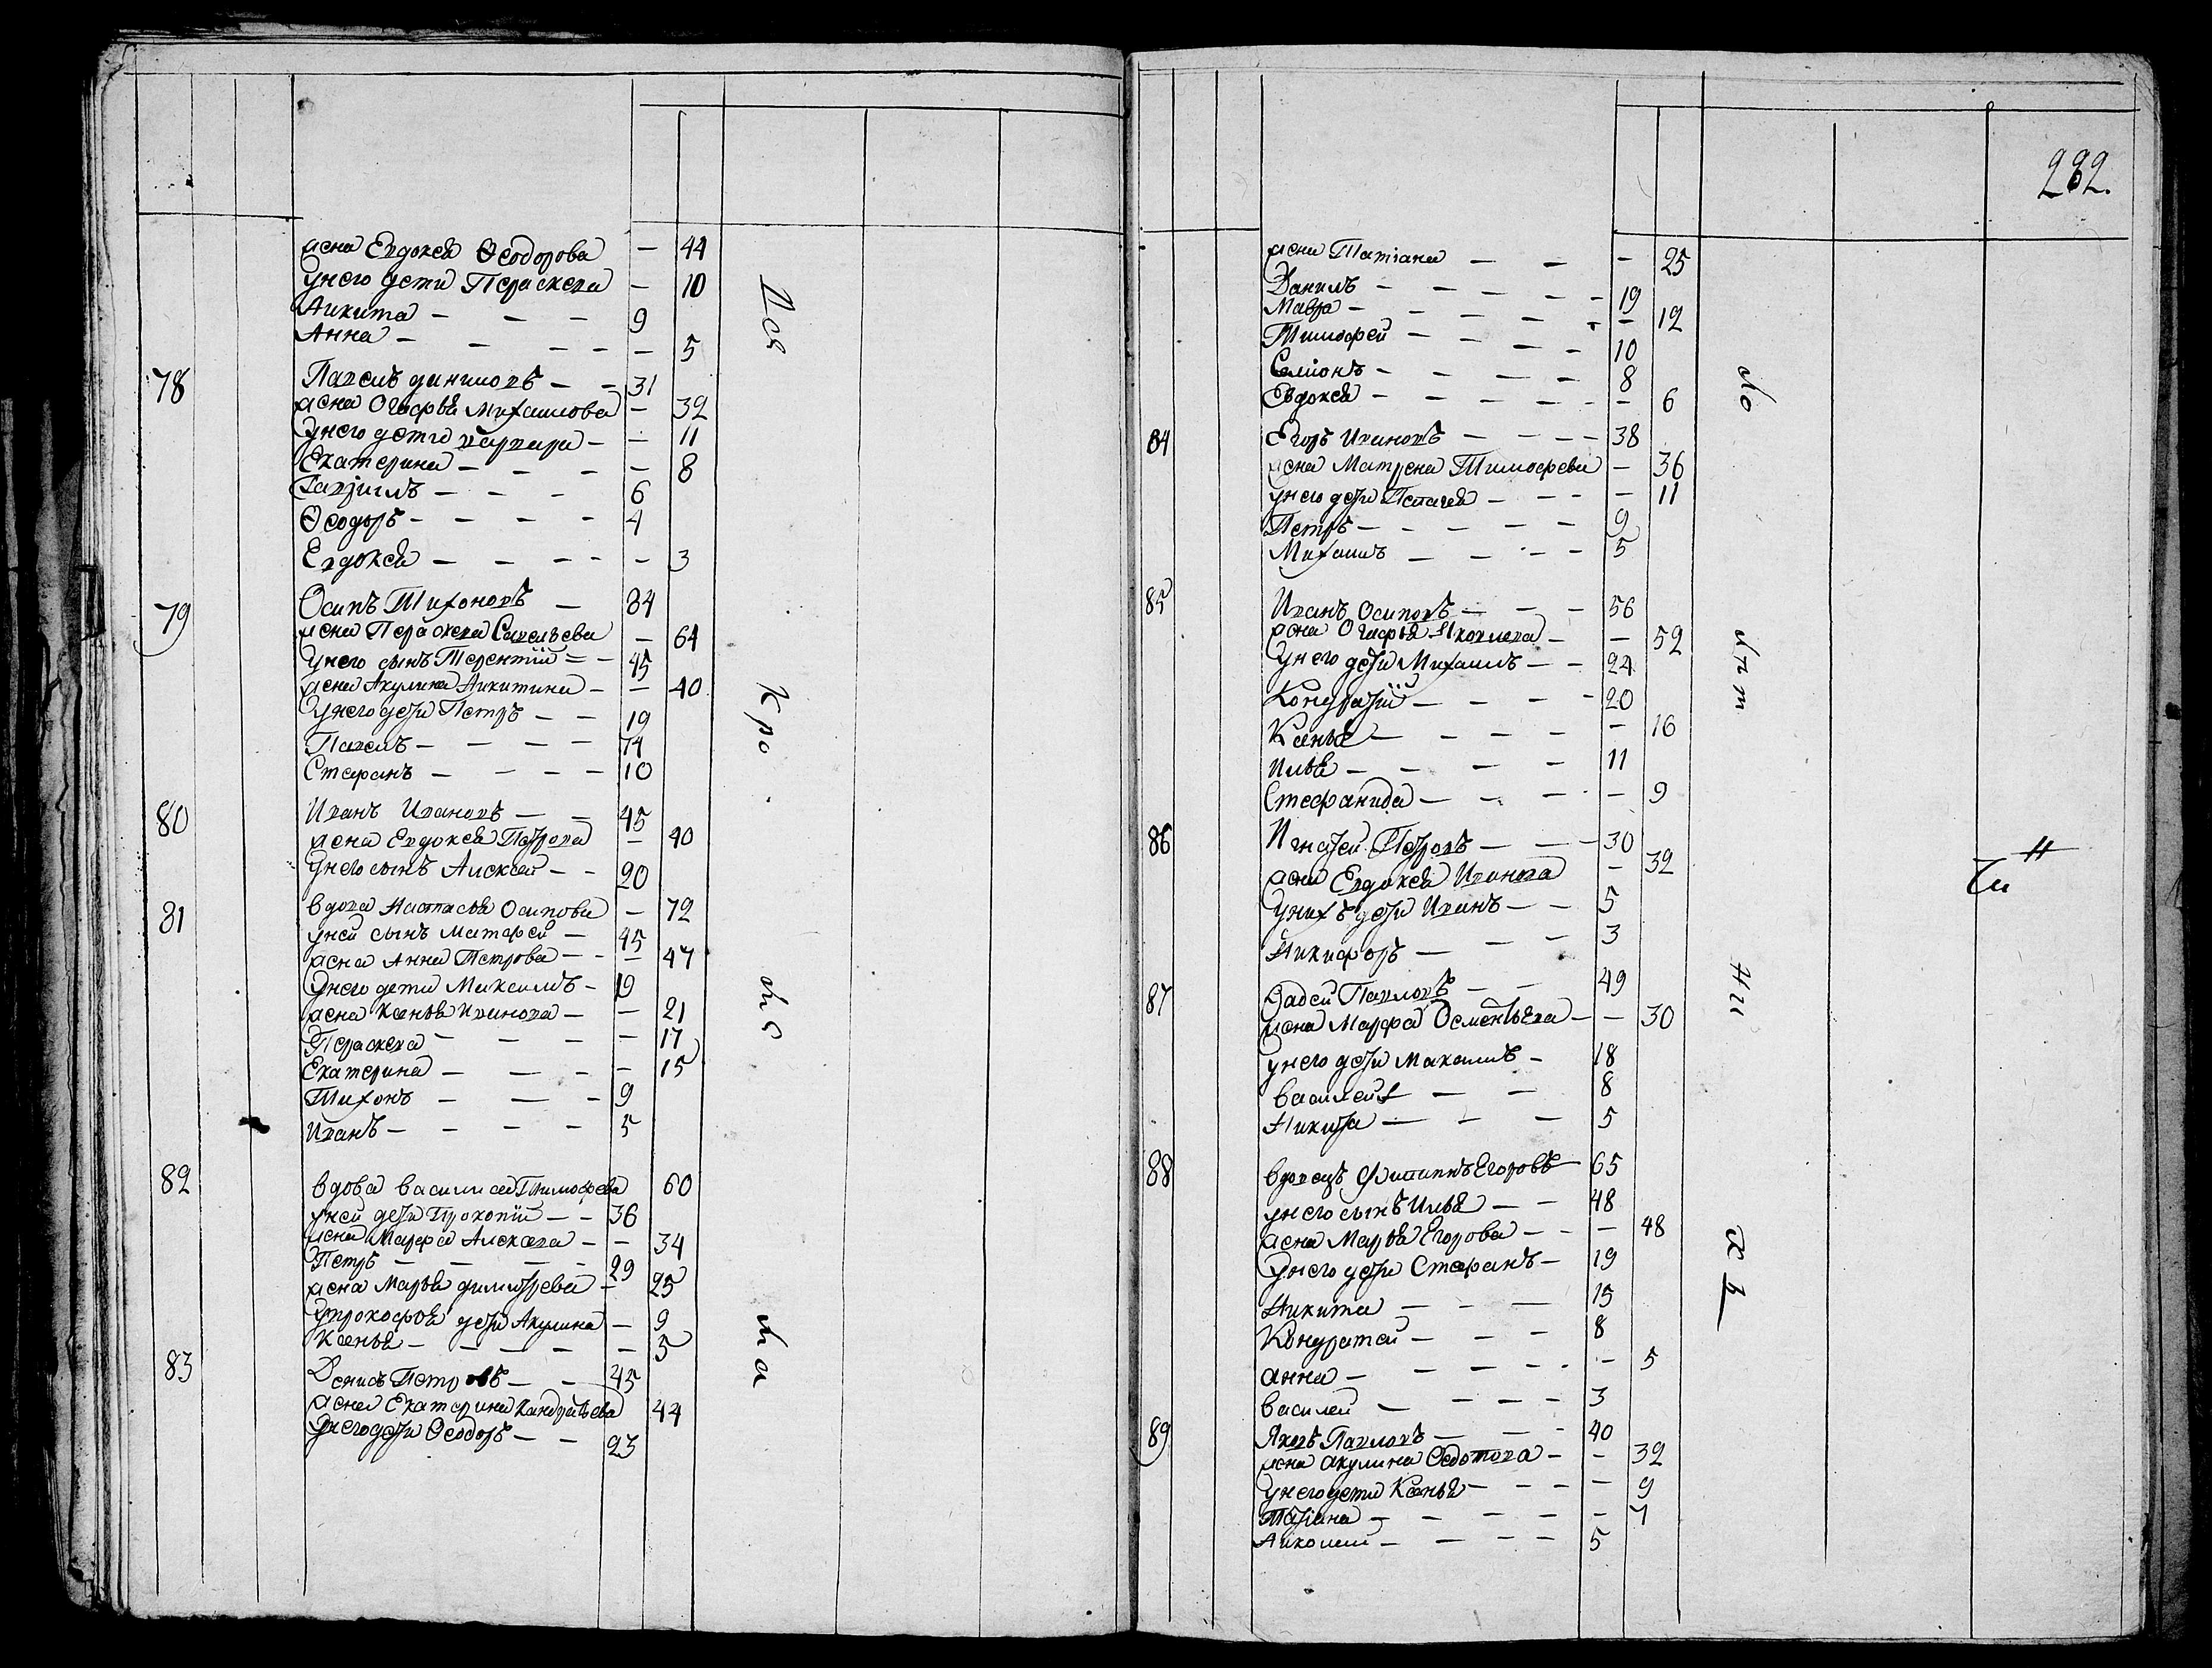 жена Евдокея Ѳеодорова — 44
У него дети Пераскева — 10
Никита — — — 9
Анна — — — — — 5
78 Павелъ даниловъ — — 31
жена Огафья Михаилова — 32
У него дети варвара — — 11
Екатерина — — — — 8
Гаврилъ — — — 6
Ѳеодоръ — — — — 4
Евдокея — — — — — 3
79 Осипъ Тихоновъ — 84
жена Пераскева Савельева — 64
У него сынъ Терентiй — — 45
жена Акулина Никитина — — 40
У него дети Петръ — — 19
Павелъ — — — — 14
Стефанъ — — — — 10
80 Иванъ Ивановъ — — 45
жена Евдокея Петрова — 40
У него сынъ Алексей — — 20
81 вдова Настасья Осипова — 72
у ней сынъ Матфей — 45
жена Анна Петрова — — — 47
У него дети Максимъ — 19
жена Ксенья Иванова — — 21
Пераскева — — — — 17
Екатерина — — — — 15
Тихонъ — — — 9
Иванъ — — — — 5
82 вдова василиса Тимофеева 60
у ней дети Прокопiй — — 36
жена Марфа Алексеева — — 34
Петръ — — — — 29
жена Марья димитреева — 25
У прокофья дети Акулина — 9
Ксенья — — — — — 5
83 Денисъ Петровъ — — 45
жена Екатерина кандратьева 44
У него дети Ѳеодоръ — — 23
Вся
Кре
стья
на
282.
жена Татiана — — — 25
Данилъ — — — — — 19
Мавра — — — — — — 12
Тимофей — — — — 10
Семiонъ — — — — 8
Евдокея — — — — — — 6
84 Егоръ Ивановъ — — — — 38
жена Матрена Тимофеева — 36
у него дети Пелагея — — — — 11
Петръ — — — — — 9
Михаилъ — — — — 5
85 Иванъ Осиповъ — — — 56
жена Огафья Яковлева — — 52
У него дети Михаилъ — — 24
Кондратiй — — — — 20
Ксенья — — — — — 16
Илья — — — — 11
Стефанида — — — — 9
86 Игнатей Петровъ — — — 30
жена Евдокея Иванова — 32
У нихъ дети Иванъ — — 5
Никифоръ — — — 3
87 Фадей Павловъ — — 49
жена Марфа — — 30
у него дети Максимъ — 18
василей — — 8
Никита — — — 5
88 вдовецъ Филиппъ Егоровъ — 65
у него сынъ Илья — — 48
жена Марья Егорова — — — 48
У него дети Стефанъ — 19
Никита — — — 15
Кондратей — — — 8
анна — — — — — — 5
василей — — — — 3
89 Яковъ Павловъ — — — 40
жена акулина Федотова — — 32
У него дети Ксенья — — — — 9
Татiана — — — — — 7
Николай — — — — 5